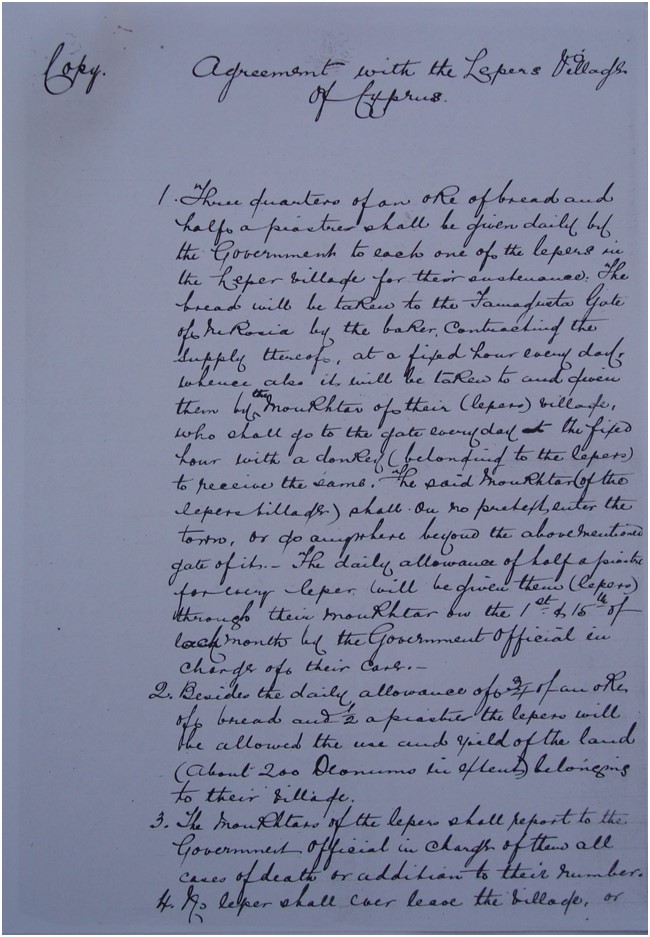 Copy.
Agreement with the Lepers Village
of Cyprus.
1. Three quarters of an oke of bread and
half a piastre shall be given daily by
the Government to each one of the lepers in
the Leper village for their sustenance. The
bread will be taken to the Famagusta Gate
of Nicosia by the baker, contracting the
supply thereof, at a fixed hour every day,
whence also it will be taken to and given
them by the Moukhtar of their (lepers) village,
who shall go to the gate everyday at the fixed
hour with a donkey (belonging to the lepers)
to receive the same. The said Moukhtar (of the
lepers village) shall on no pretext, enter the
town, or go anywhere beyond the abovementioned
gate of it. - The daily allowance of half a piastre
for every leper will be given them (lepers)
through their Moukhtar on the 1st & 15th of
each month by the Government Official in
charge of their care. -
2. Besides the daily allowance of 3/4 of an oke
of bread and 1/2 a piastre the lepers will
be allowed the use and yield of the land
(about 200 Deonums in extent) belonging
to their village.
3. The Moukhtars of the lepers shall report to the
Government Official in charge of them all
cases of death or addition to their number.
4. No leper shall ever leave the village, or